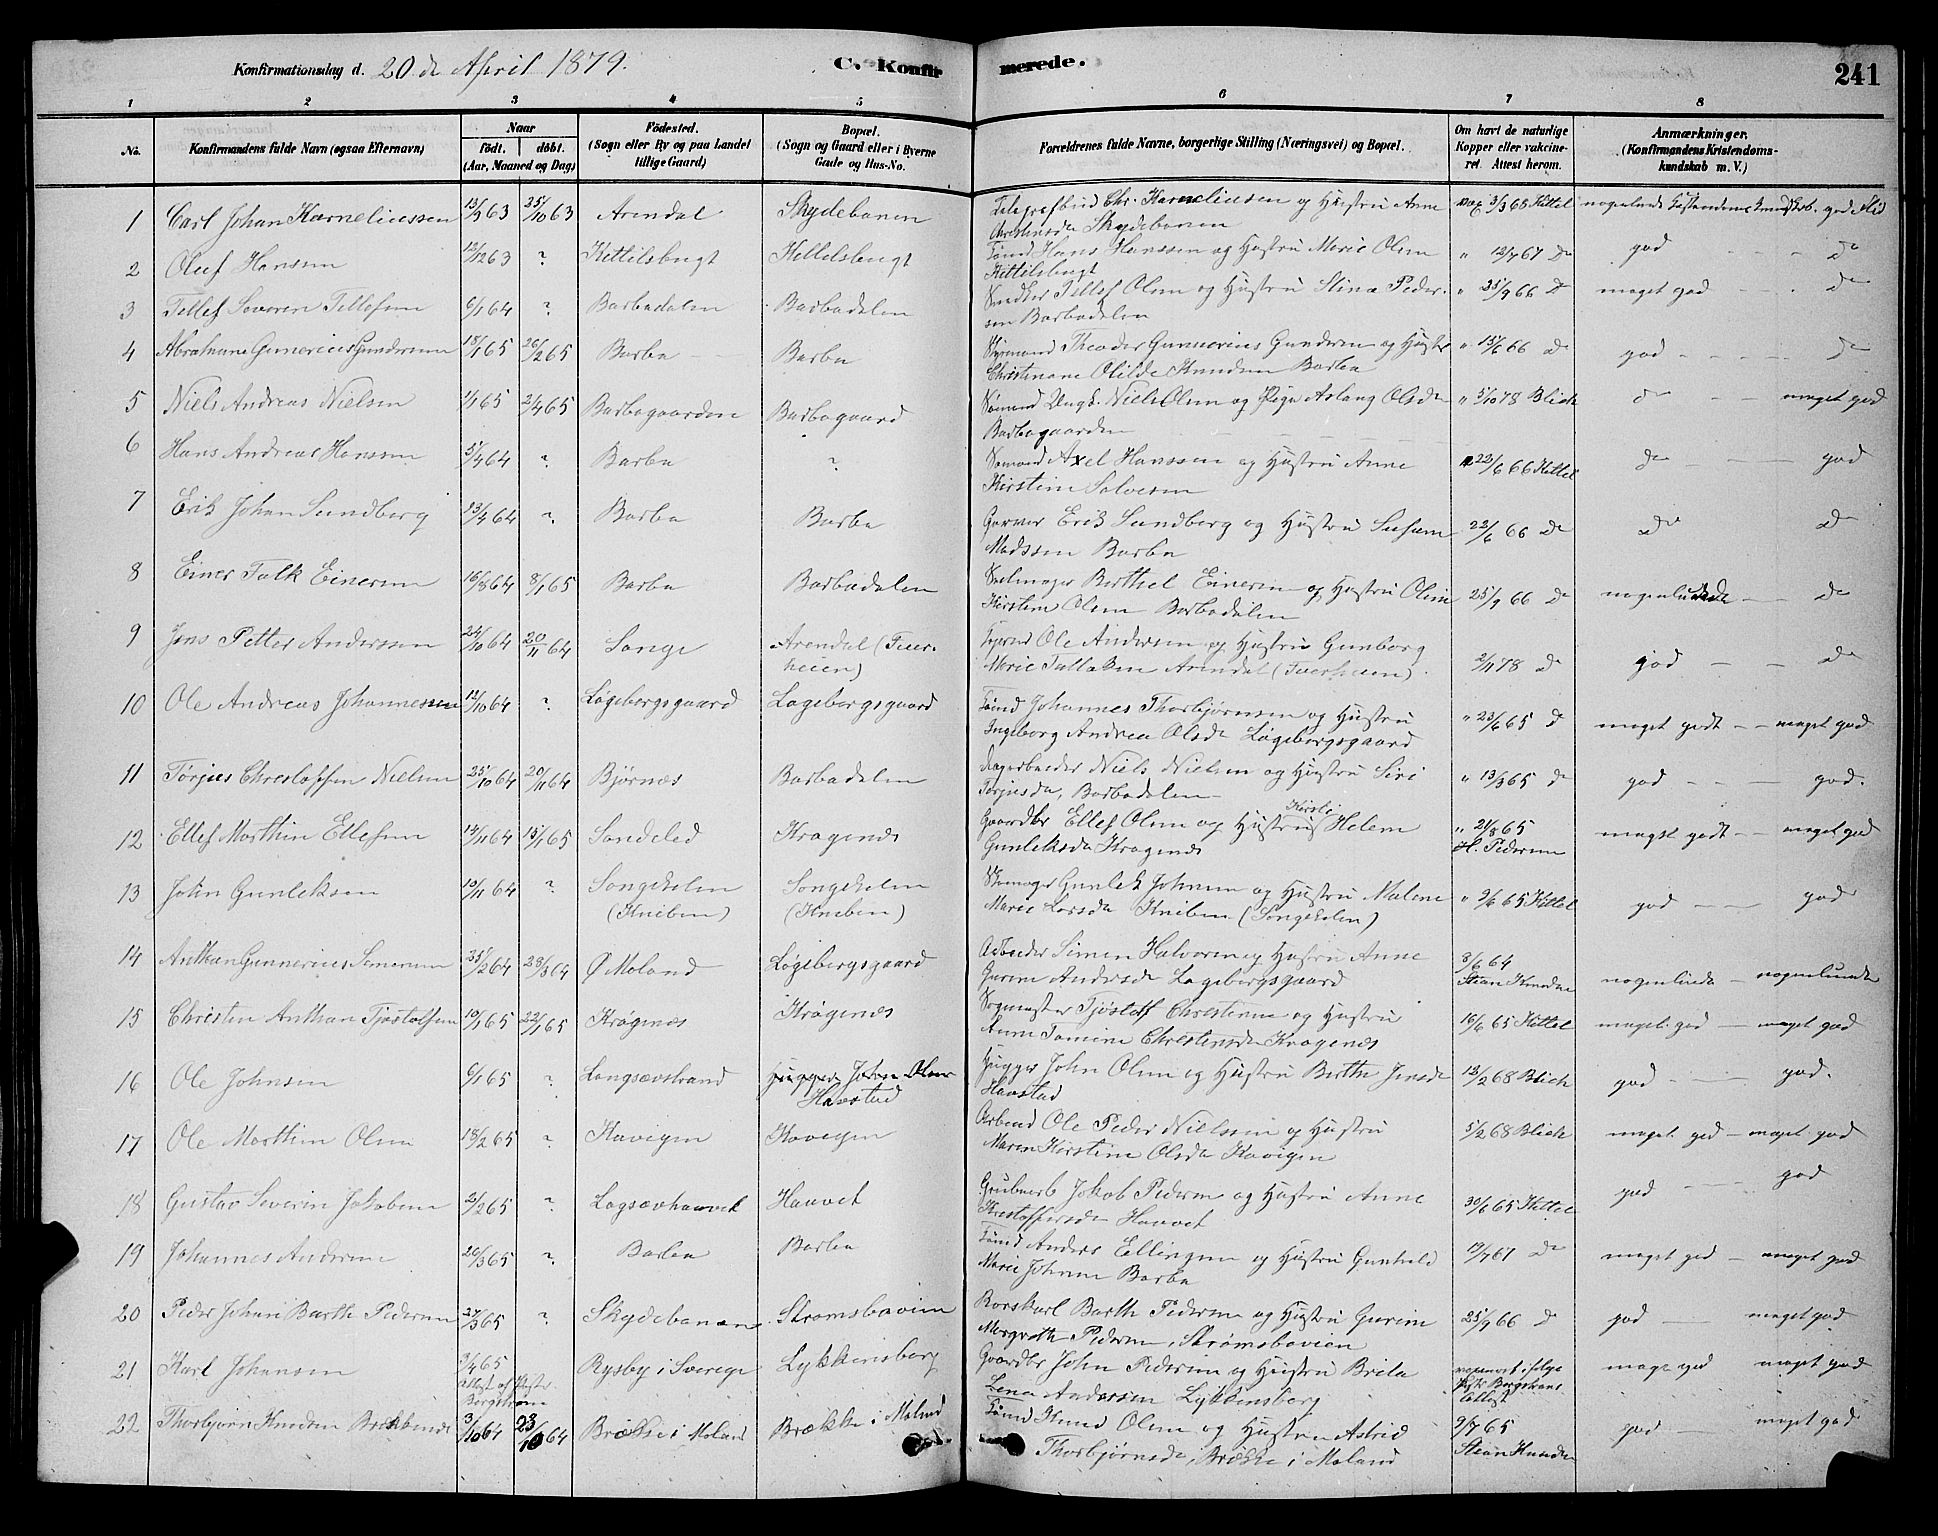 Konfirmationsdag d. 20 de April 1879.
C. Konfirmerede.
241
1 2 3 4 5 6 7 8
No.
Konfirmandens fulde Navn (ogsaa Efternavn)
Naar
födt. döbt.
(Aar, Maaned og Dag)
Födested.
(Sogn eller By og paa Landet
tillige Gaard)
Bopæl.
(Sogn og Gaard eller i Byerne
Gade og Hus-No.
Forældrenes fulde Navne, borgerlige Stilling (Næringsvei) og Bopæl.
Om havt de naturlige
Kopper eller vakcine-
ret. Attest herom.
Anmærkninger,
(Konfirmandens Kristendoms-
kundskab m. V.)
1 Carl Johan Karneliussen 13/9 63 25/10 63 Arendal Skydebanen Telegrafbud Chr. Karneliusen og Hustru Anne 3/3 66 Kittel
Skydebanen
2 Oluf Hanssen 12/12 63 ? Kittilsbugt Kittelsbugt Tømd Hans Hanssen og Hustru Marie Olsen " 12/7 67 do god - - - do
Kittilsbugt
3 Tellef Severin Tellefsen 6/1 64 ? Barbadalen Barbadalen Snedker Tellef Olsen og Hustru Stina Peder- " 25/9 66 do meget god - - do
sen Barbadalen
4 Abraham Gunerius Gundersen 18/1 65 26/2 65 Barbu Barbu Styrmand Theodor Gunnerius Gundersen og Hustru " 15/6 66 do god - - - do
Christiane Olilde Knudsen Barbu
5 Niels Andreas Nielsen 1/1 65 2/4 65 Barbogaarden Barbogaard Sømand Ungk. Niels Olsen og Pige Aslaug Olsdr " 5/10 78 Blich do - - meget god
Barbogaarden
6 Hans Andreas Hanssen 5/4 64 ? Barbu ? Sømand Axel Hanssen og Hustru Anne 22/6 66 Kittel do - - god
Kirstine Salvesen
7 Erik Johan Sundberg 13/4 64 ? Barbu Barbu Garver Erik Sundberg og Hustru Susanne 22/6 66 do do do
Madssen Barbu
8 Einer Falk Einersen 16/8 64 8/1 65 Barbu Barbadalen Seilmager Berthel Einersen og Hustru Oline 25/9 66 do nogenlunde - - do
Kirstine Olsen Barbadalen
9 Jens Petter Anderssen 24/10 64 20/11 64 Songe Arendal (Tuer- Ole Andersen og Hustru Gunborg 2/11 78 do god - - do
heien) Marie Tallaksen Arendal (Tuerheien).
10 Ole Andreas Johannessen 12/10 64 ? Løgebergsgaard Løgebergsgaard Tømd Johannes Thorbjørnsen og Hustru " 23/6 65 do meget godt - - meget god
Ingeborg Andrea Olsdr Løgebergsgaard
11 Tørjus Christoffen Nielsen 25/10 64 20/11 64 Bjørnæs Barbadalen Dagarbeider Niels Nielsen og Hustru Siri " 13/3 65 do god - - - god.
Tørjusdr, Barbadalen
12 Ellef Marthin Ellefsen 13/11 64 15/1 65 Søndeled Kragenæs Gaardbr Ellef Olsen og Hustru Kirsti Helene " 21/8 65 meget godt - - meget god
Gunleksdr Kragenæs H. Pedersen
13 John Gunleksen 10/11 64 ? Songekelen Songekelen Gunlek Johnsen og Hustru Malene " 2/6 65 Kittel god - - - god
(Kniben) (Kniben) Marie Larsdr Kniben (Songekelen)
14 Anthan Gunnerius Simonsen 25/2 64 28/3 64 Ø Moland Løgebergsgaard Arbeider Simen Halvorsen og Hustru Anne 3/6 64 nogenlunde - nogenlunde
Gurine Andersdr Løgebergsgaard Stian Knudsen
15 Christen Anthan Tjøstolfsen 10/1 65 22/1 65 Kragenæs Kragenæs Sogmester Tjøstolf Christensen og Hustru 16/6 65 Kittel meget god - meget god
Anne Tomine Christensdr Kragenæs
16 Ole Johnsen 6/1 65 ? Langsævstrand Hugger John Olsen Hugger John Olsen og Hustru Berthe Jensdr 12/2 68 Blich god - - god.
Havstad Havstad
17 Ole Marthin Olsen 18/2 65 ? Kavigen Kavigen Arbeid Ole Peder Nielssen og Hustru 5/2 68 Blich meget god - meget god
Maren Kirstine Olsdr Kavigen
18 Gustav Severin Jakobsen 2/2 65 ? Lagsævhauvet Hauvet Grubearb Jakob Pedersen og Hustru Anne 30/6 65 Kittel god - - - god
Kristoffersdr Hauvet
19 Johannes Andersen 20/3 65 ? Barbu Barbu Tømd Anders Ellingsen og Hustru Gunhild 12/7 67 do meget god - meget god
Marie Johnsen Barbu
20 Peder Johan Barth Pedersen 27/3 65 ? Skydebanen Strømsbovien Rorskarl Barth Pedersen og Hustru Gurine 25/9 66 do god - meget god
Margrethe Pedersen, Strømsbovien
21 Karl Johansen 3/4 65 Rysby i Sverige Lykkensborg Gaardbr John Pedersen og Hustru Brita meget god meget god
Attest af Pastor Bergstrøm Lena Anderssen Lykkensborg Attest
22 Thorbjørn Knudsen Brækken 3/10 64 23/10 64 Brække i Moland Brække i Moland Tømd Knud Olsen og Hustru Astrid 9/7 65 god - meget god
Thorbjørnsdr, Brække i Moland Stian Knudsen